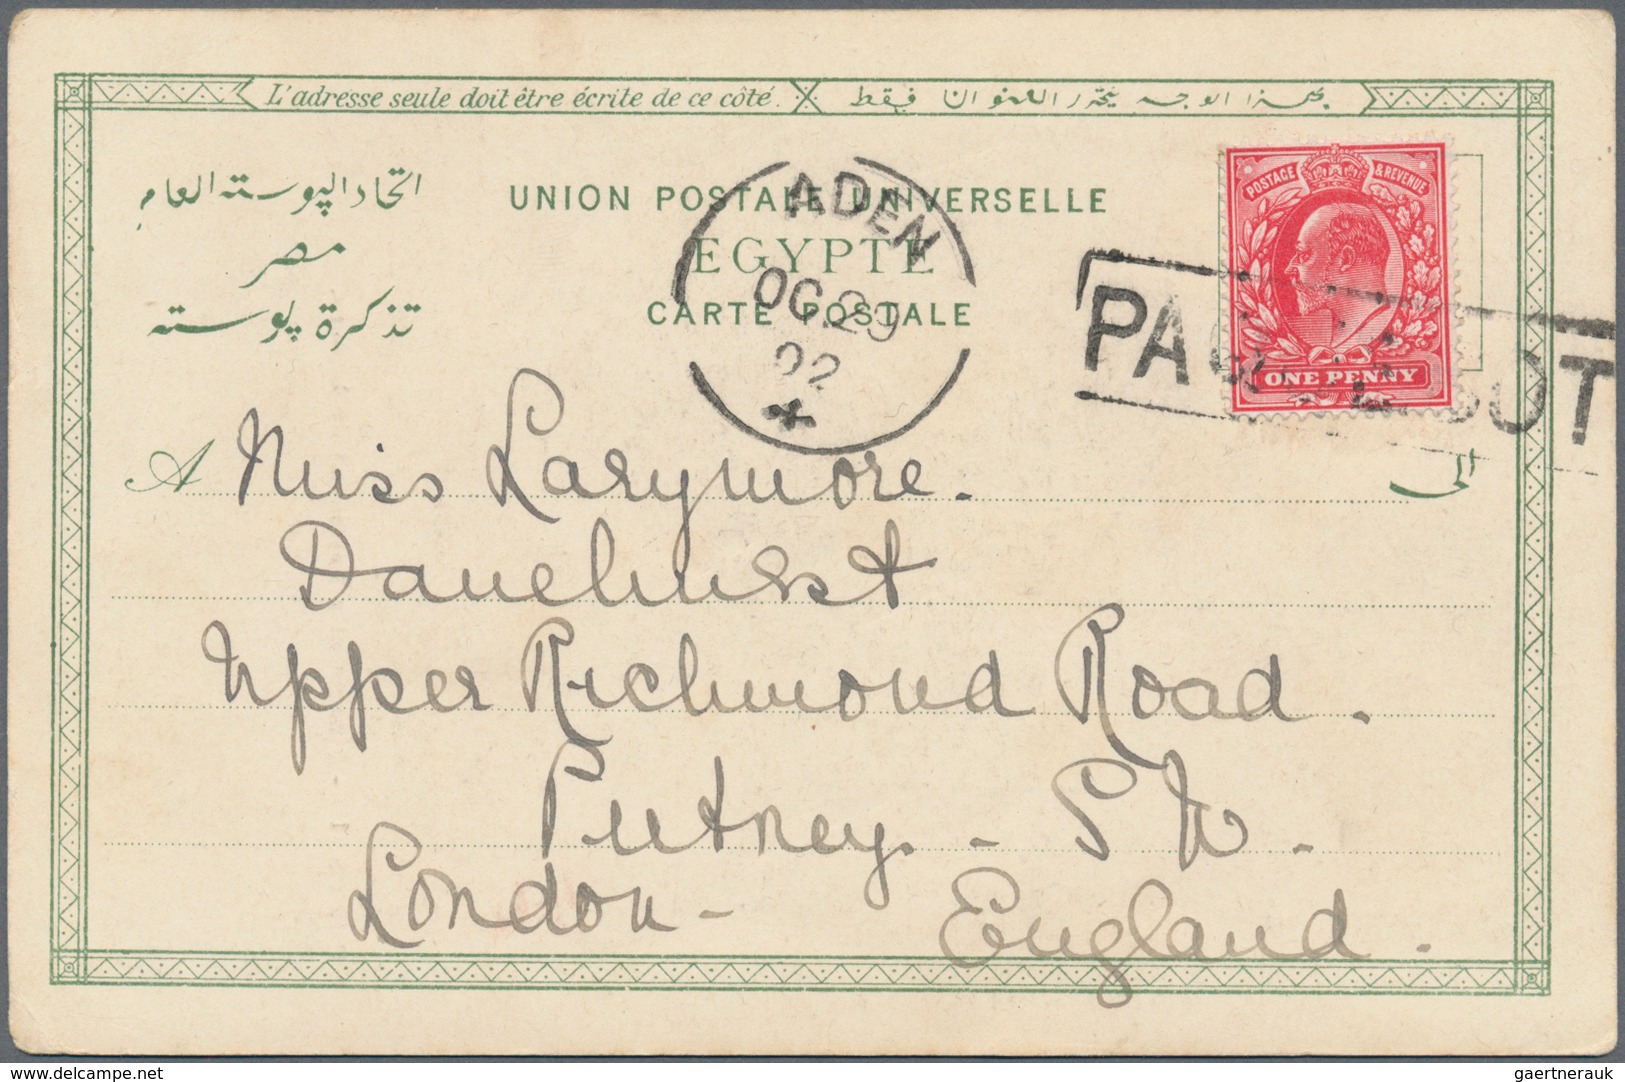 L'adresse seule doit être écrite de ce côté.
بهذا الوجه يحرر العنوان فقط
اتحاد البوسته العام
مصر
تذكرة بوسته
UNION POSTALE UNIVERSELLE
EGYPTE
CARTE POSTALE
ADEN
OC 29
02
POSTAGE & REVENUE
ONE PENNY
A Miss Larymore.
الى
Danehurst
Upper Richmond Road.
Putney. - S W.
London - England.
delcampe.net
gaertnerauk